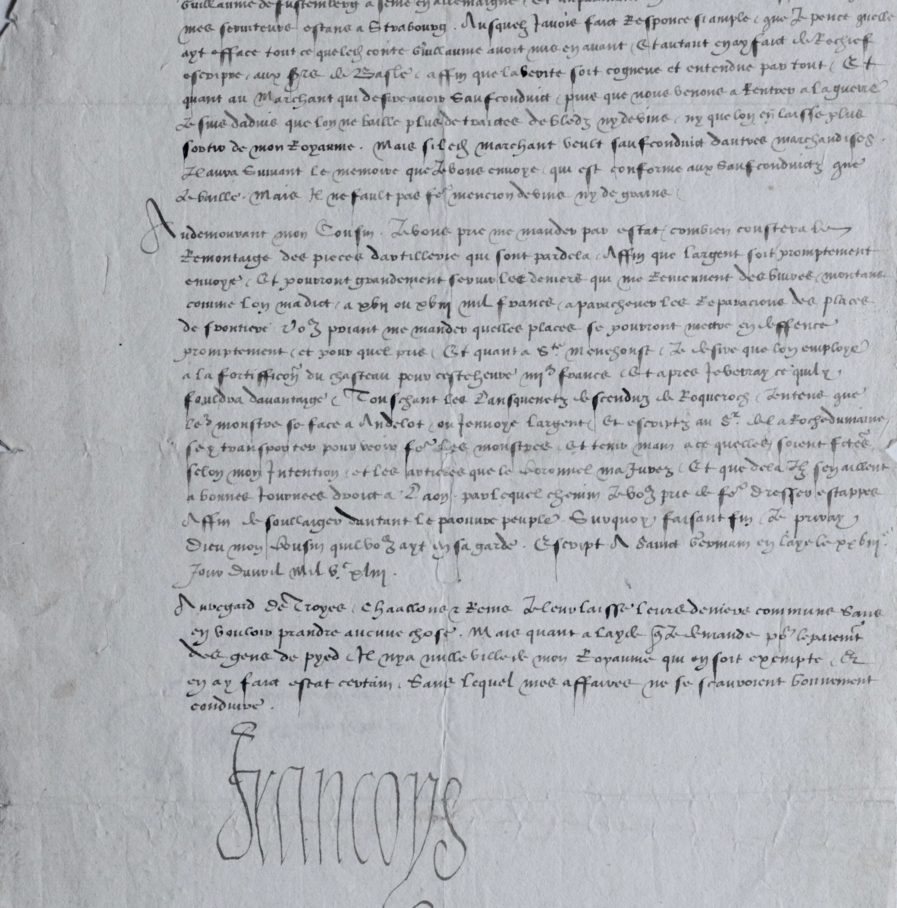 Guillaume de fustemberg a semé en allemaigne, Et
mes serviteurs estans a Strabourg. Ausquelz Javois faict Responce si ample, que Je pence quelle
ayt efface tout ce que led conte Guillaume avoit mis en avant, Et autant en ay faict de Rechief
escripre, aux Srs de Basle, affin que la verite soit cogneue et entendue par tout, Et
quant au Marchant qui desire avoir Saufconduict, puis que nous venons a Rentrer a la guerre
Je suis dadvis que lon ne baille plus de traictes de bledz ny de vins, ny que lon en laisse plus
sortir de mon Royaume. Mais si led marchant veult saufconduict dautres marchandises.
Il aura Suivant le memoire que Je vous envoye, qui est conforme aux Saufconduictz que
Je baille. Mais Il ne fault pas fe mencion de vins ny de grains.
Au demourant mon Cousin. Je vous prie me mander par estat, combien coustera le
Remontaige des pieces dartillerie qui sont pardela, Affin que largent soit promptement
envoyé, Et pourront grandement servir les deniers qui me Reviennent des vivres, montans
comme lon ma dict, a xvii ou xviii mil francs, a parachever les Reparacions des places
de frontiere. Vos priant me mander quelles places se pourront mectre en deffence
promptement, et pour quel pris, Et quant a Ste Menehoust, Je desire que lon employe
a la fortifficon du chasteau pour ceste heure iiii francs, Et apres Je verray ce quil y
fouldra davantaige, Touschant les Lansquenetz descenduz de Roqueroch, Jentens que
leur monstre se face a Andelot, ou Jenvoye largent, Et escriptz au Sr de la Rochedumaine,
se y transporter pour veoir fe les monstres, Et tenir main a ce quelles soient fctes
selon mon Intention, et les articles que le Coronnel ma Jurez, Et que dela Ilz sen aillent
a bonnes Journees droict a Laon, par lequel chemin Je vos prie de fe dresser estappes
Affin de soullaiger dautant le paouvre peuple. Surquoy faisant fin, Je priray
Dieu mon Cousin quil vos ayt en sa garde. Escript A Sainct Germain en laye le xxviiie
Jour davril Mil Vc xliii.
Au regard de Troyes, Chaallons & Rems Je leur laisse leurs deniers communs Sans
en vouloir prandre aucune chose. Mais quant a layde q Je demande pr le paiemt
des gens de pyed, Il ny a nulle ville de mon Royaume qui en soit exempte, Et
en ay faict estat certain, Sans lequel mes affaires ne se scauroient bonnement
conduire.
Francoys